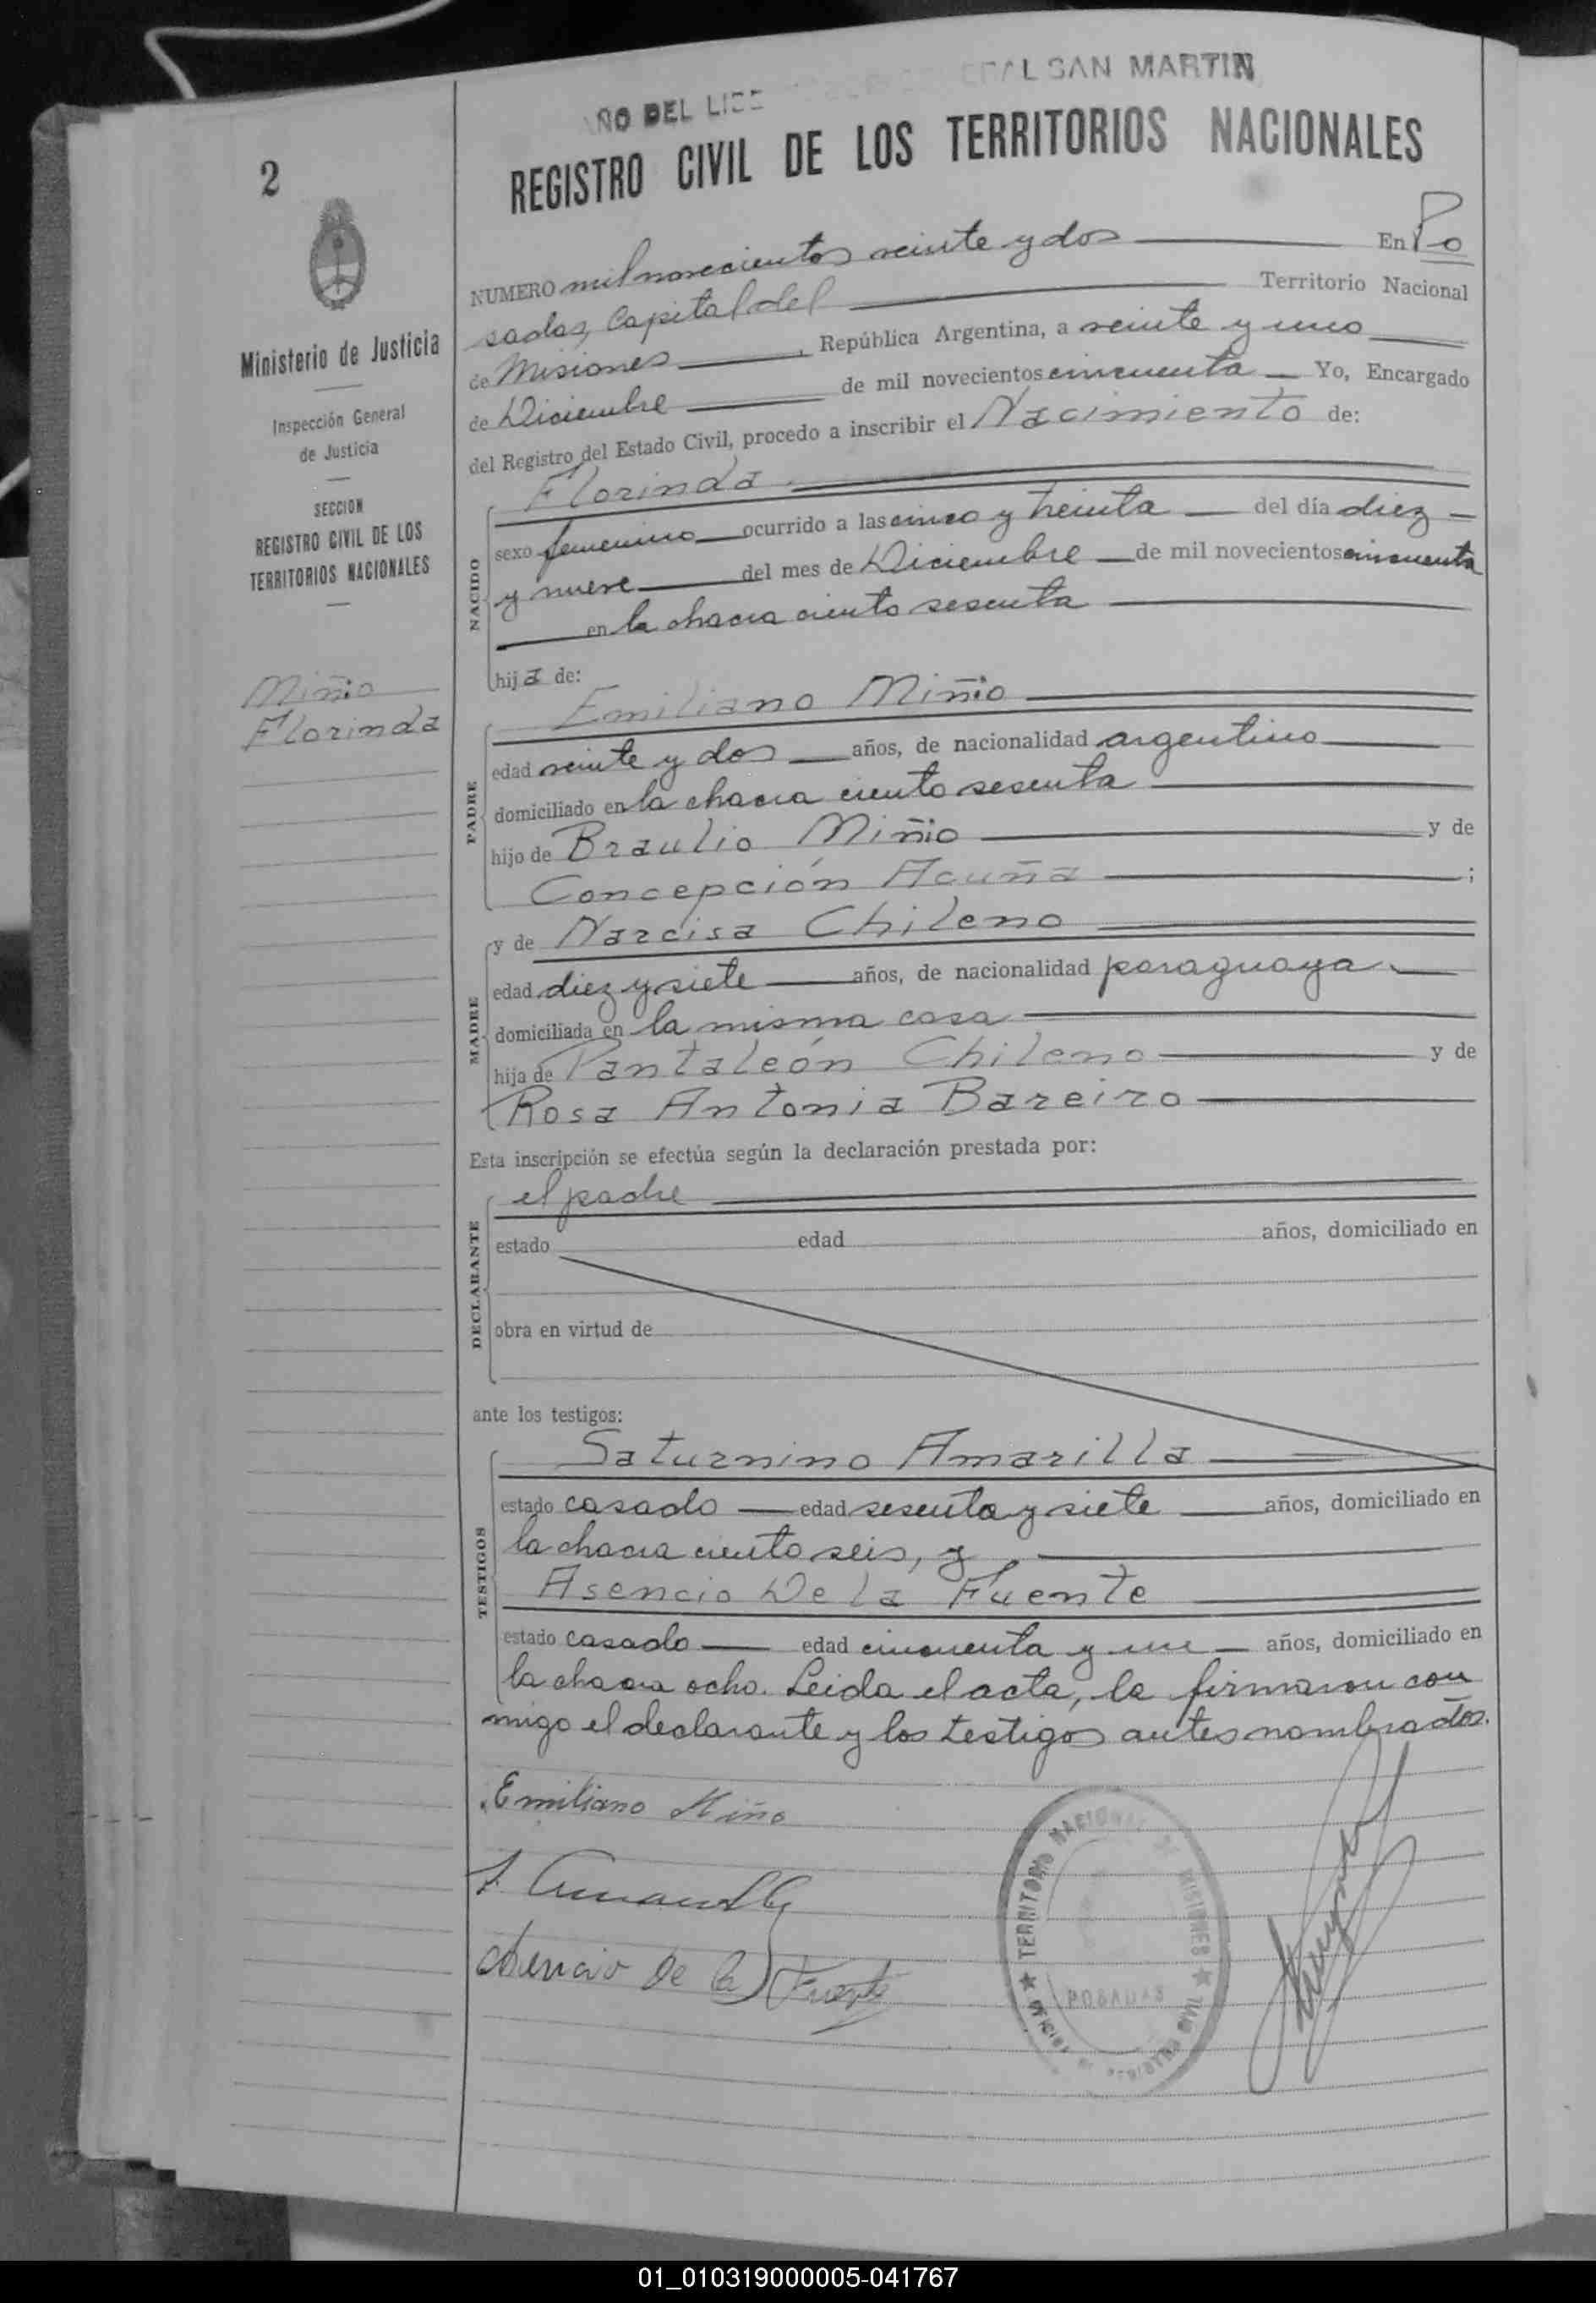 AÑO DEL LIBE GENERAL SAN MARTIN
REGISTRO CIVIL DE LOS TERRITORIOS NACIONALES
2
Ministerio de Justicia
Inspección General
de Justicia
SECCION
REGISTRO CIVIL DE LOS
TERRITORIOS NACIONALES
Miño
Florinda
NUMERO mil novecientos veinte y dos En Po
sadas, Capital del Territorio Nacional
de Misiones, República Argentina, a veinte y uno
de Diciembre de mil novecientos cincuenta Yo, Encargado
del Registro del Estado Civil, procedo a inscribir el Nacimiento de:
NACIDO
Florinda
sexo femenino ocurrido a las cinco y treinta del día diez
y nueve del mes de Diciembre de mil novecientos cincuenta
en la chacra ciento sesenta
hija de:
PADRE
Emiliano Miño
edad veinte y dos años, de nacionalidad argentino
domiciliado en la chacra ciento sesenta
hijo de Braulio Miño y de
Concepción Acuña ;
MADRE
y de Narcisa Chileno
edad diez y siete años, de nacionalidad paraguaya
domiciliada en la misma casa
hija de Pantaleón Chileno y de
Rosa Antonia Bareiro
Esta inscripción se efectúa según la declaración prestada por:
DECLARANTE
el padre
estado edad años, domiciliado en
obra en virtud de
ante los testigos:
TESTIGOS
Saturnino Amarilla
estado casado edad sesenta y siete años, domiciliado en
la chacra ciento seis, y
Asencio De la Fuente
estado casado edad cincuenta y un años, domiciliado en
la chacra ocho. Leida el acta, la firmaron con
migo el declarante y los testigos antes nombrados.
Emiliano Miño
S. Amarilla
Asencio De la Fuente
TERRITORIO NACIONAL DE MISIONES
POSADAS
REGISTRO CIVIL
01_010319000005-041767